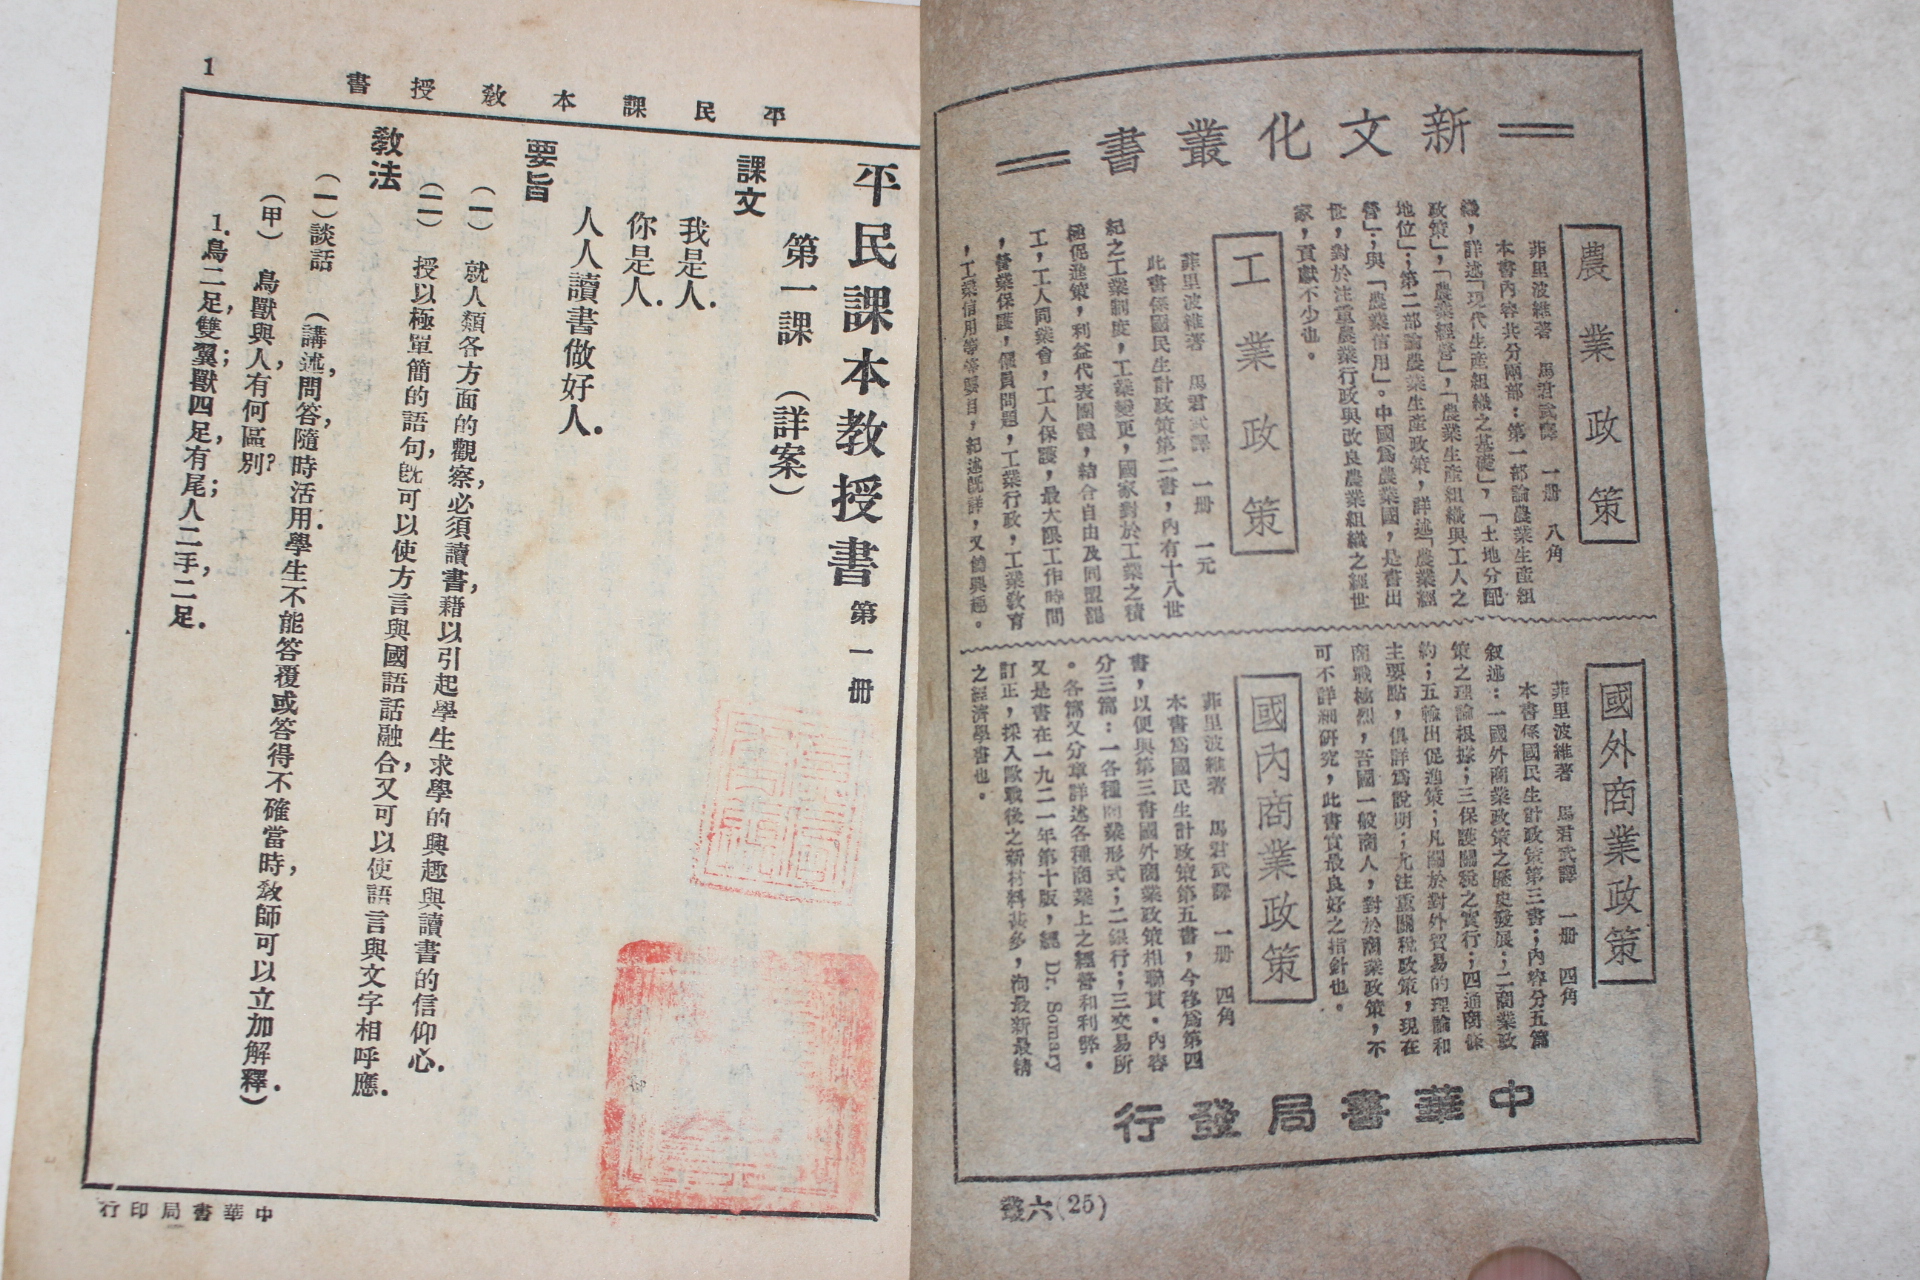 新文化叢書
農業政策
菲里波維著　馬君武譯　一册　八角
本書內容共分兩部：第一部論農業生產組
織，詳述「現代生產組織之基礎」，「土地分配
政策」，「農業經營」，「農業生產組織與工人之
地位」；第二部論農業生產政策，詳述「農業經
營」；與「農業信用」。中國爲農業國，是書出
世，對於注重農業行政與改良農業組織之經世
家，貢獻不少也。
工業政策
菲里波維著　馬君武譯　一册　一元
此書係國民生計政策第二書，內有十八世
紀之工業制度，工業變更，國家對於工業之積
極促進策，利益代表團體，結合自由及同盟罷
工，工人同業會，工人保護，最大限工作時間
，營業保護，傭員問題，工業行政，工業教育
，工業信用等等要目，紀述旣詳，又饒興趣。
國外商業政策
菲里波維著　馬君武譯　一册　四角
本書係國民生計政策第三書；內容分五篇
叙述：一國外商業政策之歷史發展；二商業政
策之理論根據；三保護關稅之實行；四通商條
約；五輸出促進策；凡關於對外貿易的理論和
主要點，俱詳爲說明；尤注重關稅政策，現在
商戰極烈，吾國一般商人，對於商業政策，不
可不詳細研究，此書實最良好之指針也。
國內商業政策
菲里波維著　馬君武譯　一册　四角
本書爲國民生計政策第五書，今移爲第四
書，以便與第三書國外商業政策相聯貫。內容
分三篇：一各種商業形式；二銀行；三交易所
。各篇又分章詳述各種商業上之經營和利弊。
又是書在一九二一年第十版，經 Dr. Somary
訂正，採入歐戰後之新材料甚多，洵最新最精
之經濟學書也。
中華書局發行
叢六(25)
平民課本教授書
1
平民課本教授書 第一册
第一課　（詳案）
課文
我是人．
你是人．
人人讀書做好人．
要旨
（一）　就人類各方面的觀察，必須讀書，藉以引起學生求學的興趣與讀書的信仰心．
（二）　授以極單簡的語句，旣可以使方言與國語話融合，又可以使語言與文字相呼應．
教法
（一）談話　（講述，問答，隨時活用．學生不能答覆或答得不確當時，教師可以立加解釋．）
（甲）　鳥獸與人，有何區別？
1. 鳥二足，雙翼；獸四足，有尾；人二手，二足．
中華書局印行